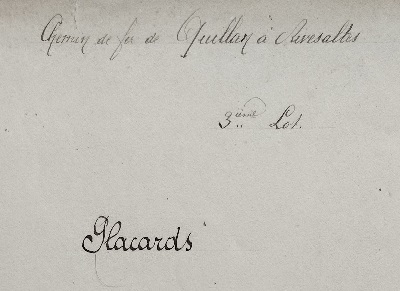 Chemin de fer de Quillan à Rivesaltes
3ième Lot.
Placards